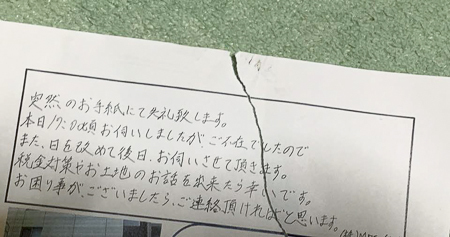 突然のお手紙にて失礼致します。
本日17:00頃お伺いしましたが、ご不在でしたので
また、日を改めて後日、お伺いさせて頂きます。
税金対策やお土地のお話を出来たら幸いです。
お困り事がございましたら、ご連絡頂ければと思います。